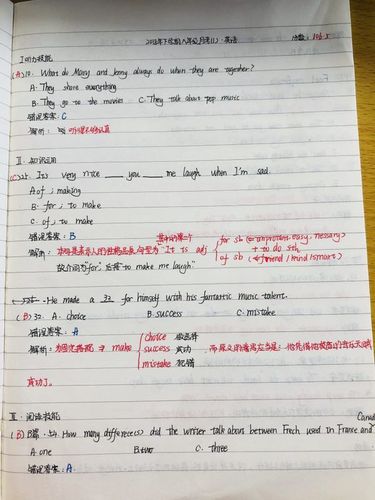 2018年下学期八年级月考(1)·英语 分数: 106.5
I 听力技能
(A)10. What do Mary and Jenny always do when they are together?
A. They share everything
B. They go to the movies C. They talk about pop music
错误答案: C
解析: 听力
II. 知识运用
(C) It's very nice ___ you ___ me laugh when I'm sad.
A. of; making
B. for; to make
C. of; to make
错误答案: B
解析: "It is adj for sb + to do sth
of sb
故介词为"for", 后接"to make me laugh"
He made a 32 for himself with his fantastic music talent.
(B) 32. A. choice B. success C. mistake
错误答案: A
解析: 为固定搭配 make choice 做选择
success 成功
mistake 犯错
成功了。
III. 阅读技能
Canad
(B) B篇. 54. How many differece(s) did the writer talk about between Frech used in France and
A. one B. two C. three
错误答案: A.